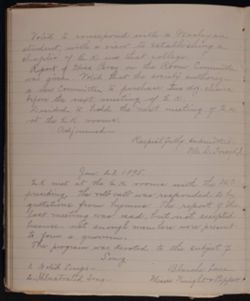 Voted to correspond with a Wesleyan
student, with a view to establishing a
chapter of E.K. in that college.
Report of Miss on the Room Committee
was given. Voted that the society authorize
a new Committee to purchase
before the next meeting of E.K.
Decided to hold the next meeting of E.K.
at the E.K. rooms.
Adjourned.
Respectfully submitted
Jan. 22, 1895.
E.K. met at the E.K. rooms with the
presiding. The roll call was responded to by
quotations from hymns. The report of the
last meeting was read, but not accepted
because not enough members were present
to form a quorum.
The program was devoted to the subject of
Song.
1. Songs - Blanche Lane
2. Illustrated Song. Misses Knight &